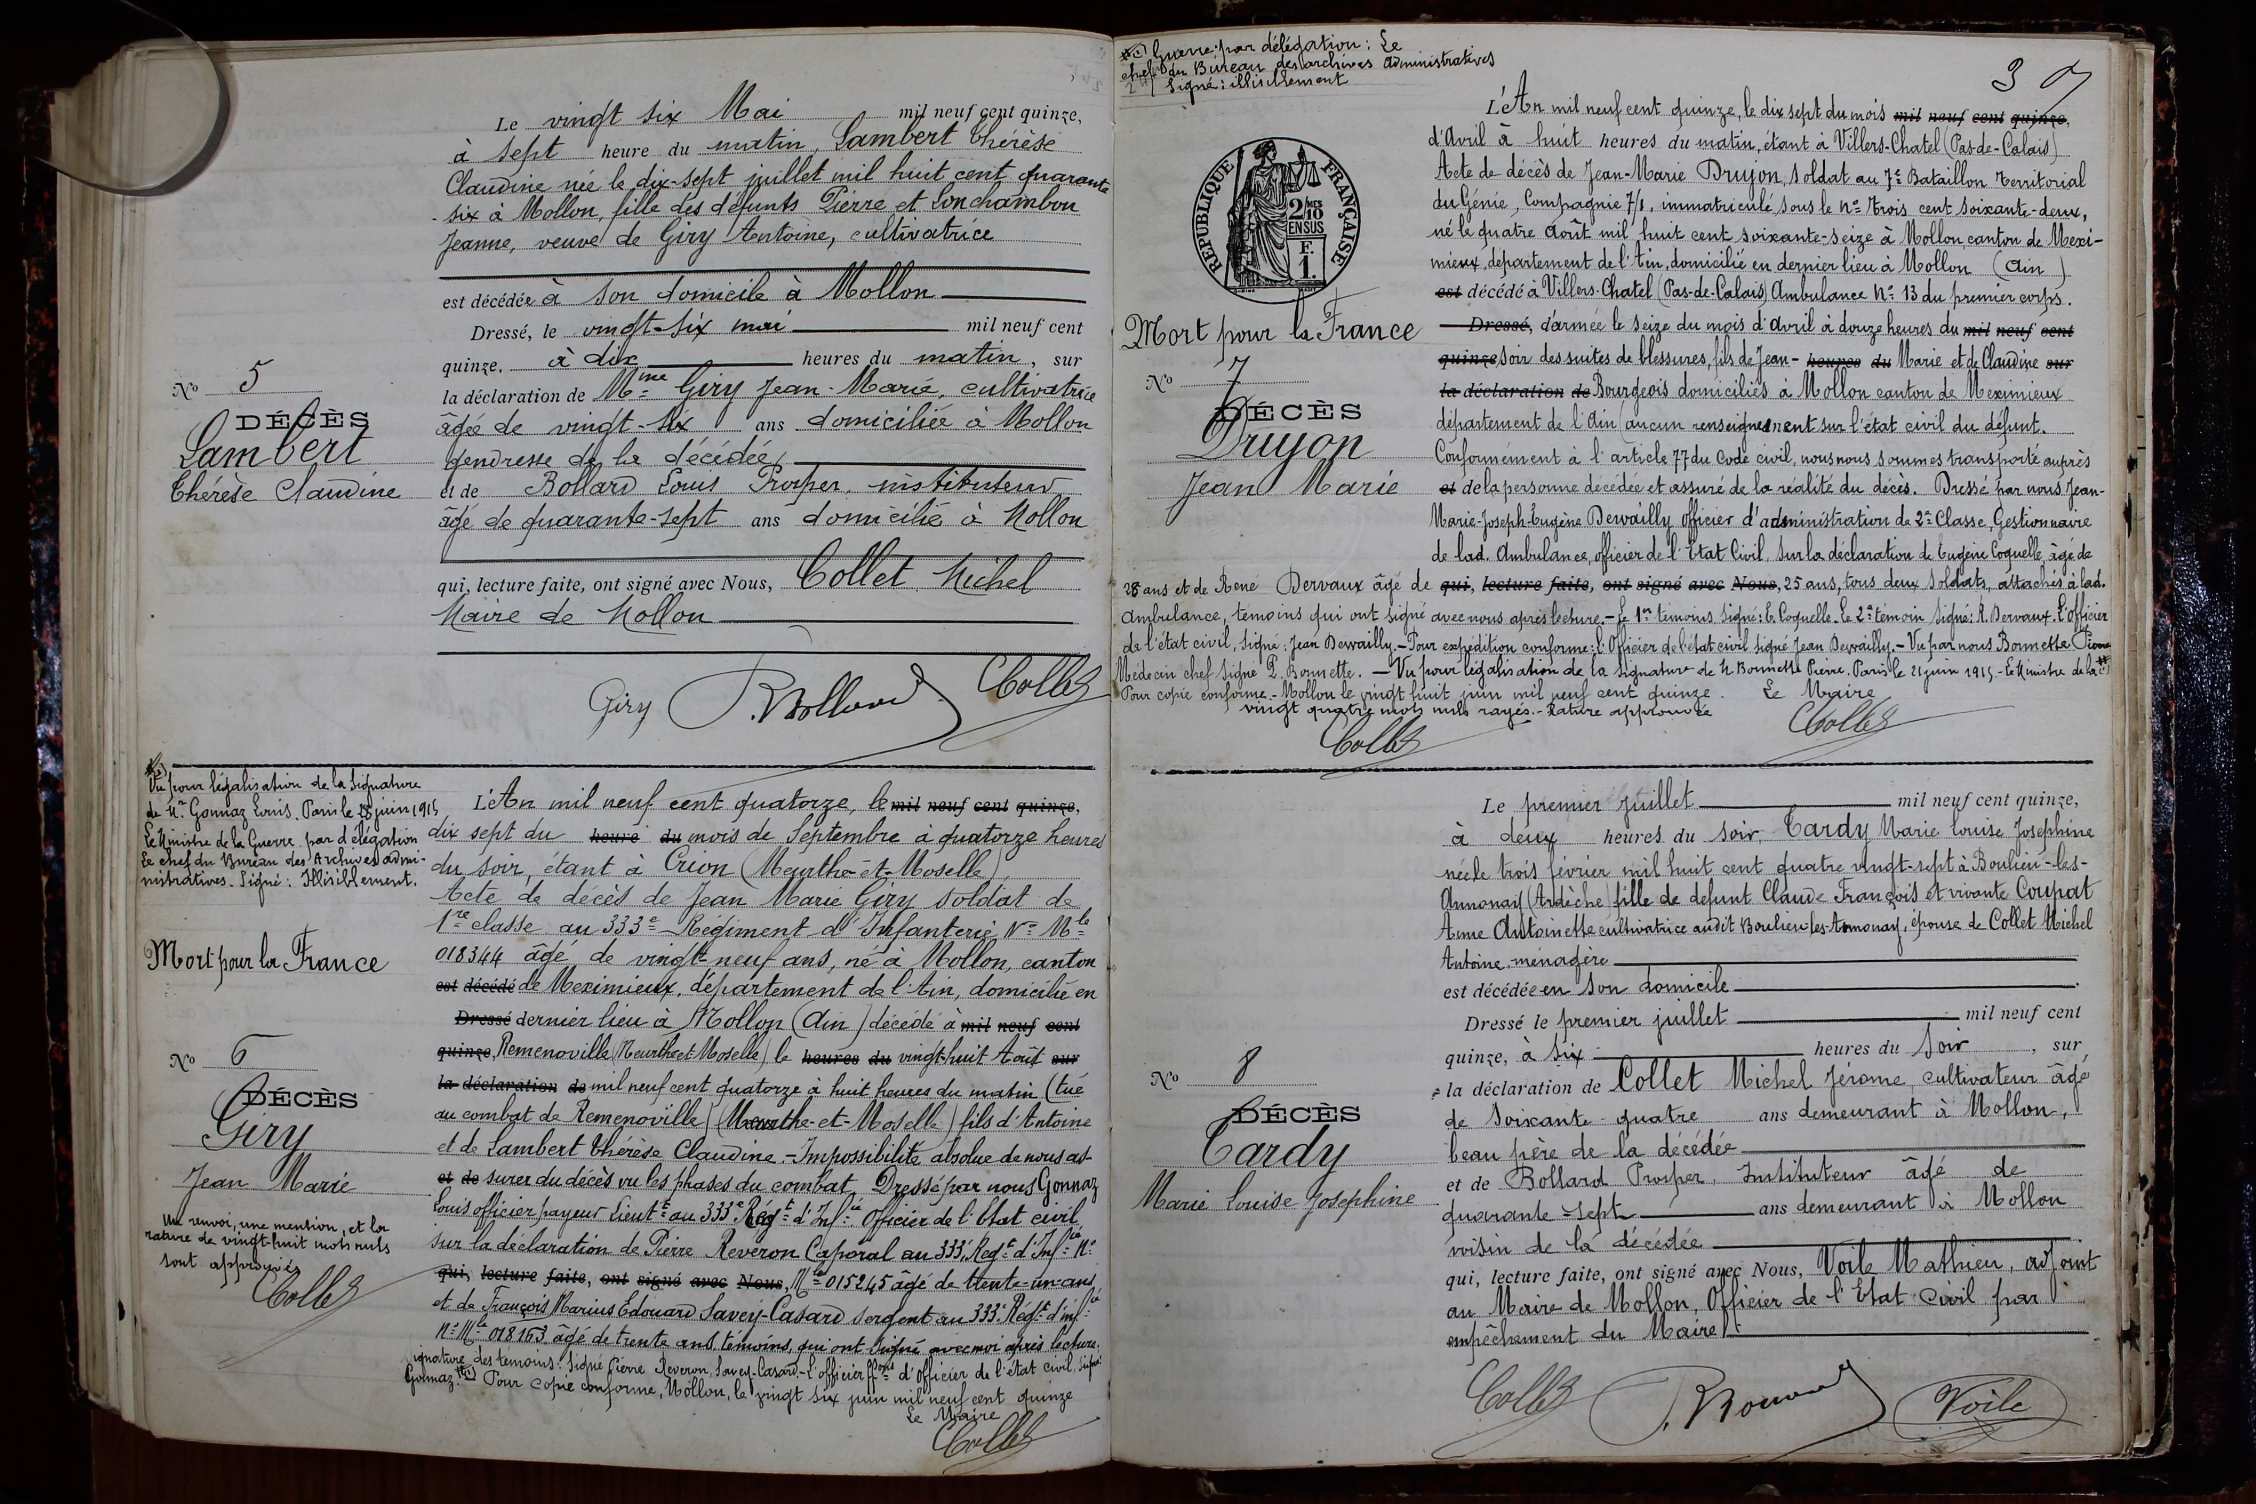 Le vingt six Mai mil neuf cent quinze,
à sept heure du matin, Lambert Thérèse
Claudine née le dix-sept juillet mil huit cent quarante
six à Mollon, fille des défunts Pierre et Lonchambon
Jeanne, veuve de Giry Antoine, cultivatrice
est décédée à son domicile à Mollon
Dressé, le vingt-six mai mil neuf cent
quinze, à dix heures du matin, sur
la déclaration de Mme Giry Jean-Marie, cultivatrice
âgée de vingt-six ans domiciliée à Mollon
gendresse de la décédée,
et de Bollard Louis Prosper, instituteur
âgé de quarante-sept ans domicilié à Mollon
qui, lecture faite, ont signé avec Nous, Collet Michel
Maire de Mollon
Nº 5
DÉCÈS
Lambert
Thérèse Claudine
Giry P. Bollard Collet
Vu pour légalisation de la signature
de Mr Gonnaz Louis. Paris le 18 juin 1915
Le Ministre de la Guerre par délégation
Le chef du Bureau des Archives admi-
nistratives. Signé: Illisiblement.
Mort pour la France
Nº 6
DÉCÈS
Giry
Jean Marie
Un renvoi, une mention, et la
rature de vingt-huit mots nuls
sont approuvés
Collet
L'An mil neuf cent quatorze, le mil neuf cent quinze,
dix sept du heure du mois de Septembre à quatorze heures
du soir, étant à Crion (Meurthe-et-Moselle),
Acte de décès de Jean Marie Giry soldat de
1re classe au 333e Régiment d'Infanterie, Nº Mle
018344 âgé de vingt-neuf ans, né à Mollon, canton
est décédé de Meximieux, département de l'Ain, domicilié en
Dressé dernier lieu à Mollon (Ain) décédé à mil neuf cent
quinze, Remenoville (Meurthe et Moselle) le heures du vingt-huit Août sur
la déclaration de mil neuf cent quatorze à huit heures du matin (tué
au combat de Remenoville) (Meurthe-et-Moselle) fils d'Antoine
et de Lambert Thérèse Claudine.- Impossibilité absolue de nous as-
et de surer du décès vu les phases du combat. Dressé par nous Gonnaz
Louis officier payeur Lieutt au 333e Regt d'Infie Officier de l'Etat civil,
sur la déclaration de Pierre Reveron Caporal au 333e Regt d'Infie Nº
qui, lecture faite, ont signé avec Nous, Mle 015245 âgé de trente-un ans
et de François Marius Edouard Savey-Casard sergent au 333e Régt d'infie
Nº Mle 018163 âgé de trente ans, témoins, qui ont signé avec moi après lecture.
ignature des temoins: Signé Pierre Reveron, Savey-Casard.- L'officier ffons d'officier de l'état civil, signé:
Gonnaz. (1) Pour copie conforme, Mollon, le vingt six juin mil neuf cent quinze
Le Maire
Collet
(1) Guerre: par délégation: Le
chef du Bureau des archives administratives
Signé: illisiblement
3
RÉPUBLIQUE FRANÇAISE
2/10 EN SUS
F.
1.
Mort pour la France
Nº 7
DÉCÈS
Drujon
Jean Marie
L'An mil neuf cent quinze, le dix sept du mois mil neuf cent quinze,
d'Avril à huit heures du matin, étant à Villers-Chatel (Pas-de-Calais)
Acte de décès de Jean-Marie Drujon, soldat au 7e Bataillon Territorial
du Génie, Compagnie 7/1, immatriculé sous le Nº trois cent soixante-deux,
né le quatre Août mil huit cent soixante-seize à Mollon, canton de Mexi-
mieux, département de l'Ain, domicilié en dernier lieu à Mollon (Ain)
est décédé à Villers-Chatel (Pas-de-Calais) Ambulance Nº 13 du premier corps.
Dressé, d'armée le seize du mois d'Avril à douze heures du mil neuf cent
quinze soir des suites de blessures, fils de Jean- heures du Marie et de Claudine sur
la déclaration de Bourgeois domiciliés à Mollon canton de Meximieux
département de l'Ain (aucun renseignement sur l'état civil du défunt.
Conformément à l'article 77 du Code civil, nous nous sommes transporté auprès
et de la personne décédée et assuré de la réalité du décès. Dressé par nous Jean-
Marie-Joseph-Eugène Dewailly officier d'administration de 2e Classe, Gestionnaire
de lad. Ambulance, officier de l'Etat Civil, sur la déclaration de Eugène Coquelle, âgé de
28 ans et de René Dervaux âgé de qui, lecture faite, ont signé avec Nous, 25 ans, tous deux soldats, attachés à lad.
Ambulance, témoins qui ont signé avec nous après lecture.- Le 1er témoins signé: E. Coquelle. Le 2e témoin signé: R. Dervaux. L'Officier
de l'état civil, signé: Jean Dewailly.- Pour expédition conforme: l'Officier de l'état civil signé Jean Dewailly.- Vu par nous Bonnette Pierre
Médecin chef signé P. Bonnette. - Vu pour légalisation de la signature de M. Bonnette Pierre. Paris le 21 juin 1915.- Le Ministre de la (1)
Pour copie conforme.- Mollon le vingt huit juin mil neuf cent quinze. Le Maire
vingt quatre mots nuls rayés.- Rature approuvée
Collet Collet
Nº 8
DÉCÈS
Tardy
Marie Louise Josephine
Le premier juillet mil neuf cent quinze,
à deux heures du soir, Tardy Marie Louise Josephine
née le trois février mil huit cent quatre vingt-sept à Boulieu-les-
Annonay (Ardèche) fille de defunt Claude François et vivante Coupat
Anne Antoinette cultivatrice audit Boulieu-les-Annonay, épouse de Collet Michel
Antoine, ménagère
est décédée en son domicile
Dressé le premier juillet mil neuf cent
quinze, à six heures du soir, sur
la déclaration de Collet Michel Jérome, cultivateur âgé
de soixante-quatre ans demeurant à Mollon,
beau père de la décédée
et de Bollard Prosper, Instituteur âgé de
quarante-sept ans demeurant à Mollon
voisin de la décédée
qui, lecture faite, ont signé avec Nous, Voile Mathieu, adjoint
au Maire de Mollon, Officier de l'Etat Civil par
empêchement du Maire.
Collet P. Bollard Voile